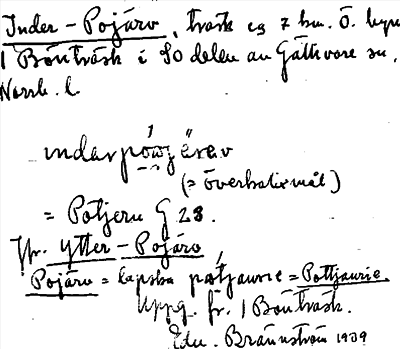 Inder-Pojärv, träsk ca 7 km. Ö. byn
1 Bönträsk i SO delen av Gällivare sn,
Norrb. l.
(= överkalixmål)
= Potjeru G 28.
Jfr. Ytter-Pojärv
Pojärv = lapska påtjaurie = Pottjaurie.
Uppg. fr. 1 Bönträsk.
Edv. Brännström 1939